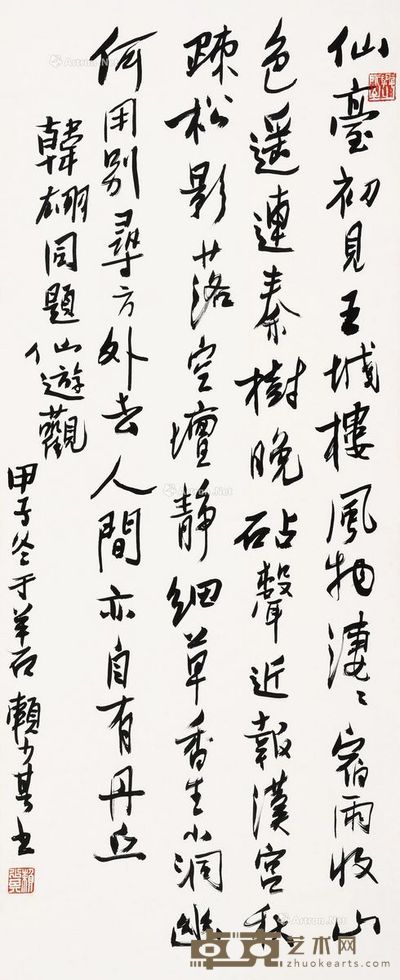 仙臺初見五城樓風物淒〻宿雨收山
色遙連秦樹晚砧聲近報漢宮秋
疎松影落空壇靜細草香生小洞幽
何用別尋方外去人間亦自有丹丘
韓翃同題仙遊觀
甲子冬于羊石賴少其书
卓克艺术网
zhuokearts.com
Artron.Net